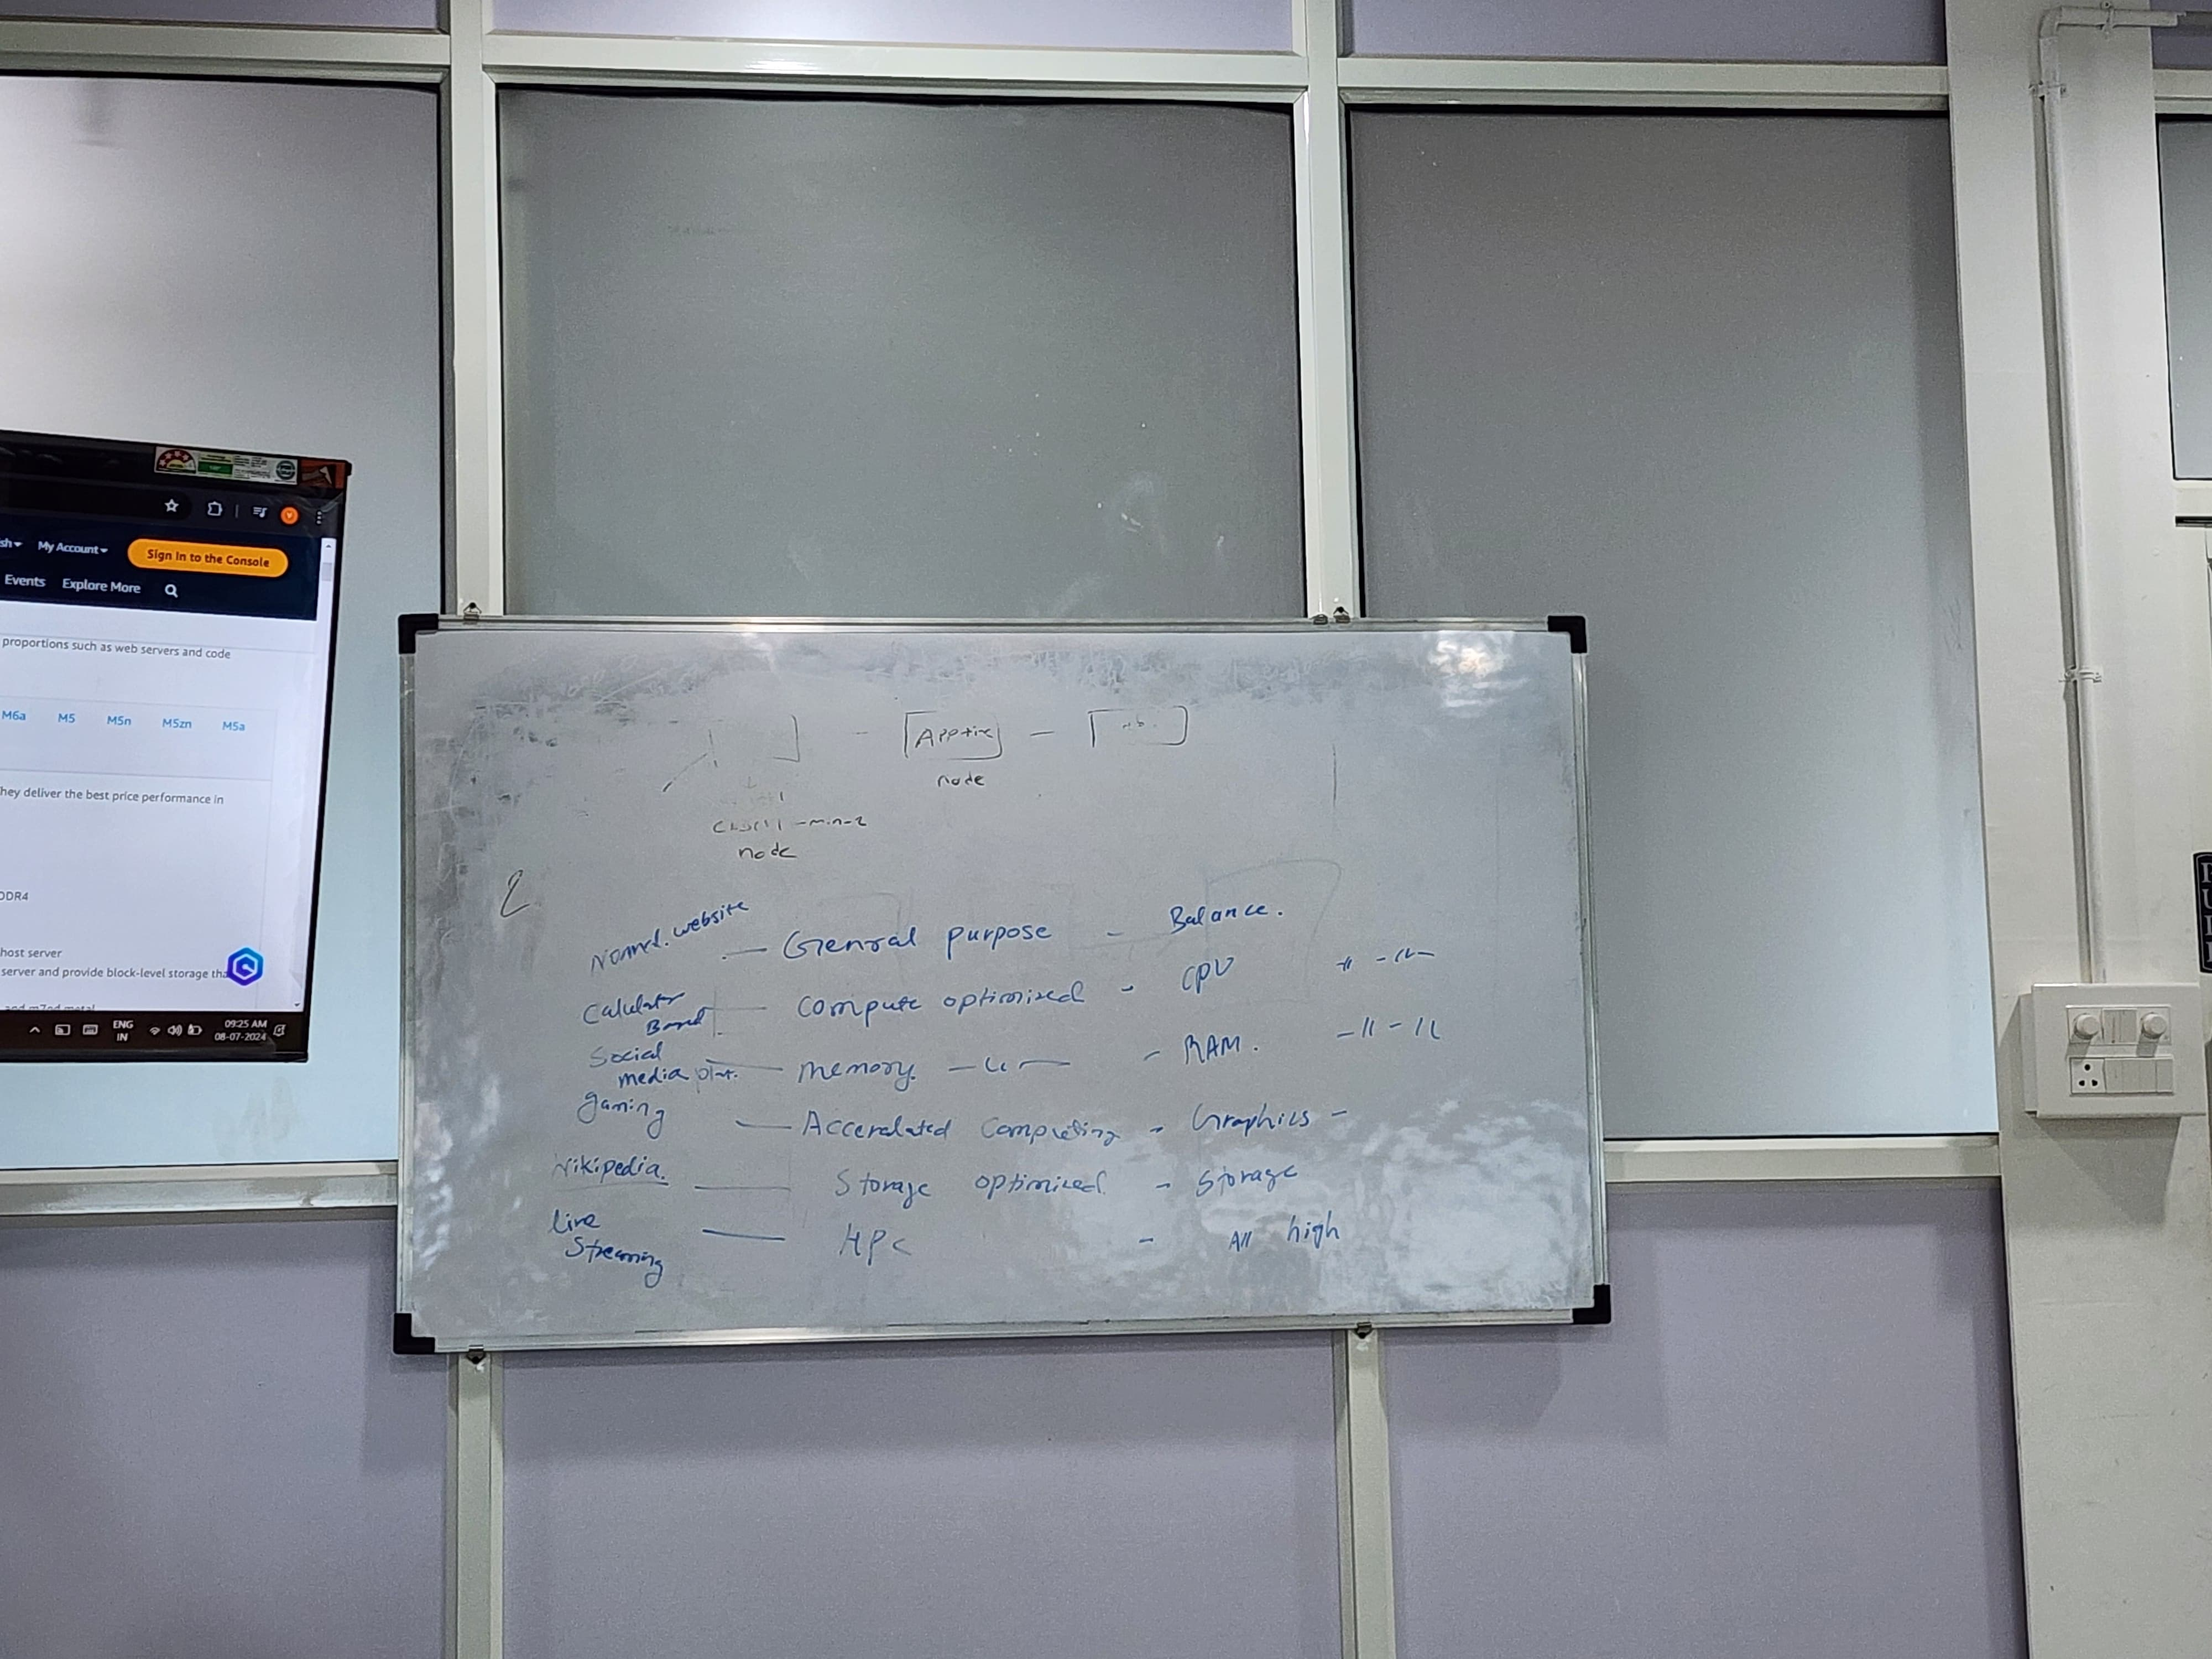 sh My Account Sign In to the Console
Events Explore More
proportions such as web servers and code
M6a M5 M5n M5zn M5a
hey deliver the best price performance in
DDR4
host server
server and provide block-level storage tha
ENG
IN
09:25 AM
08-07-2024
node
-min-2
node
website — General purpose - Balance.
Compute optimized - CPU
Social
media — memory. — - RAM.
gaming — Accerelated Computing - Graphics -
Wikipedia. — Storage optimized - Storage
live
Streaming — HPC - All high